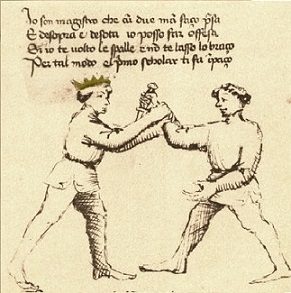 Io son magistro che cū due mā faço p̄sa
E desopra e desota io posso far offesa
Se io te volto le spalle e nō te lasso lo braço
Per tal modo el p̄mo scholar ti fa ĩpaço